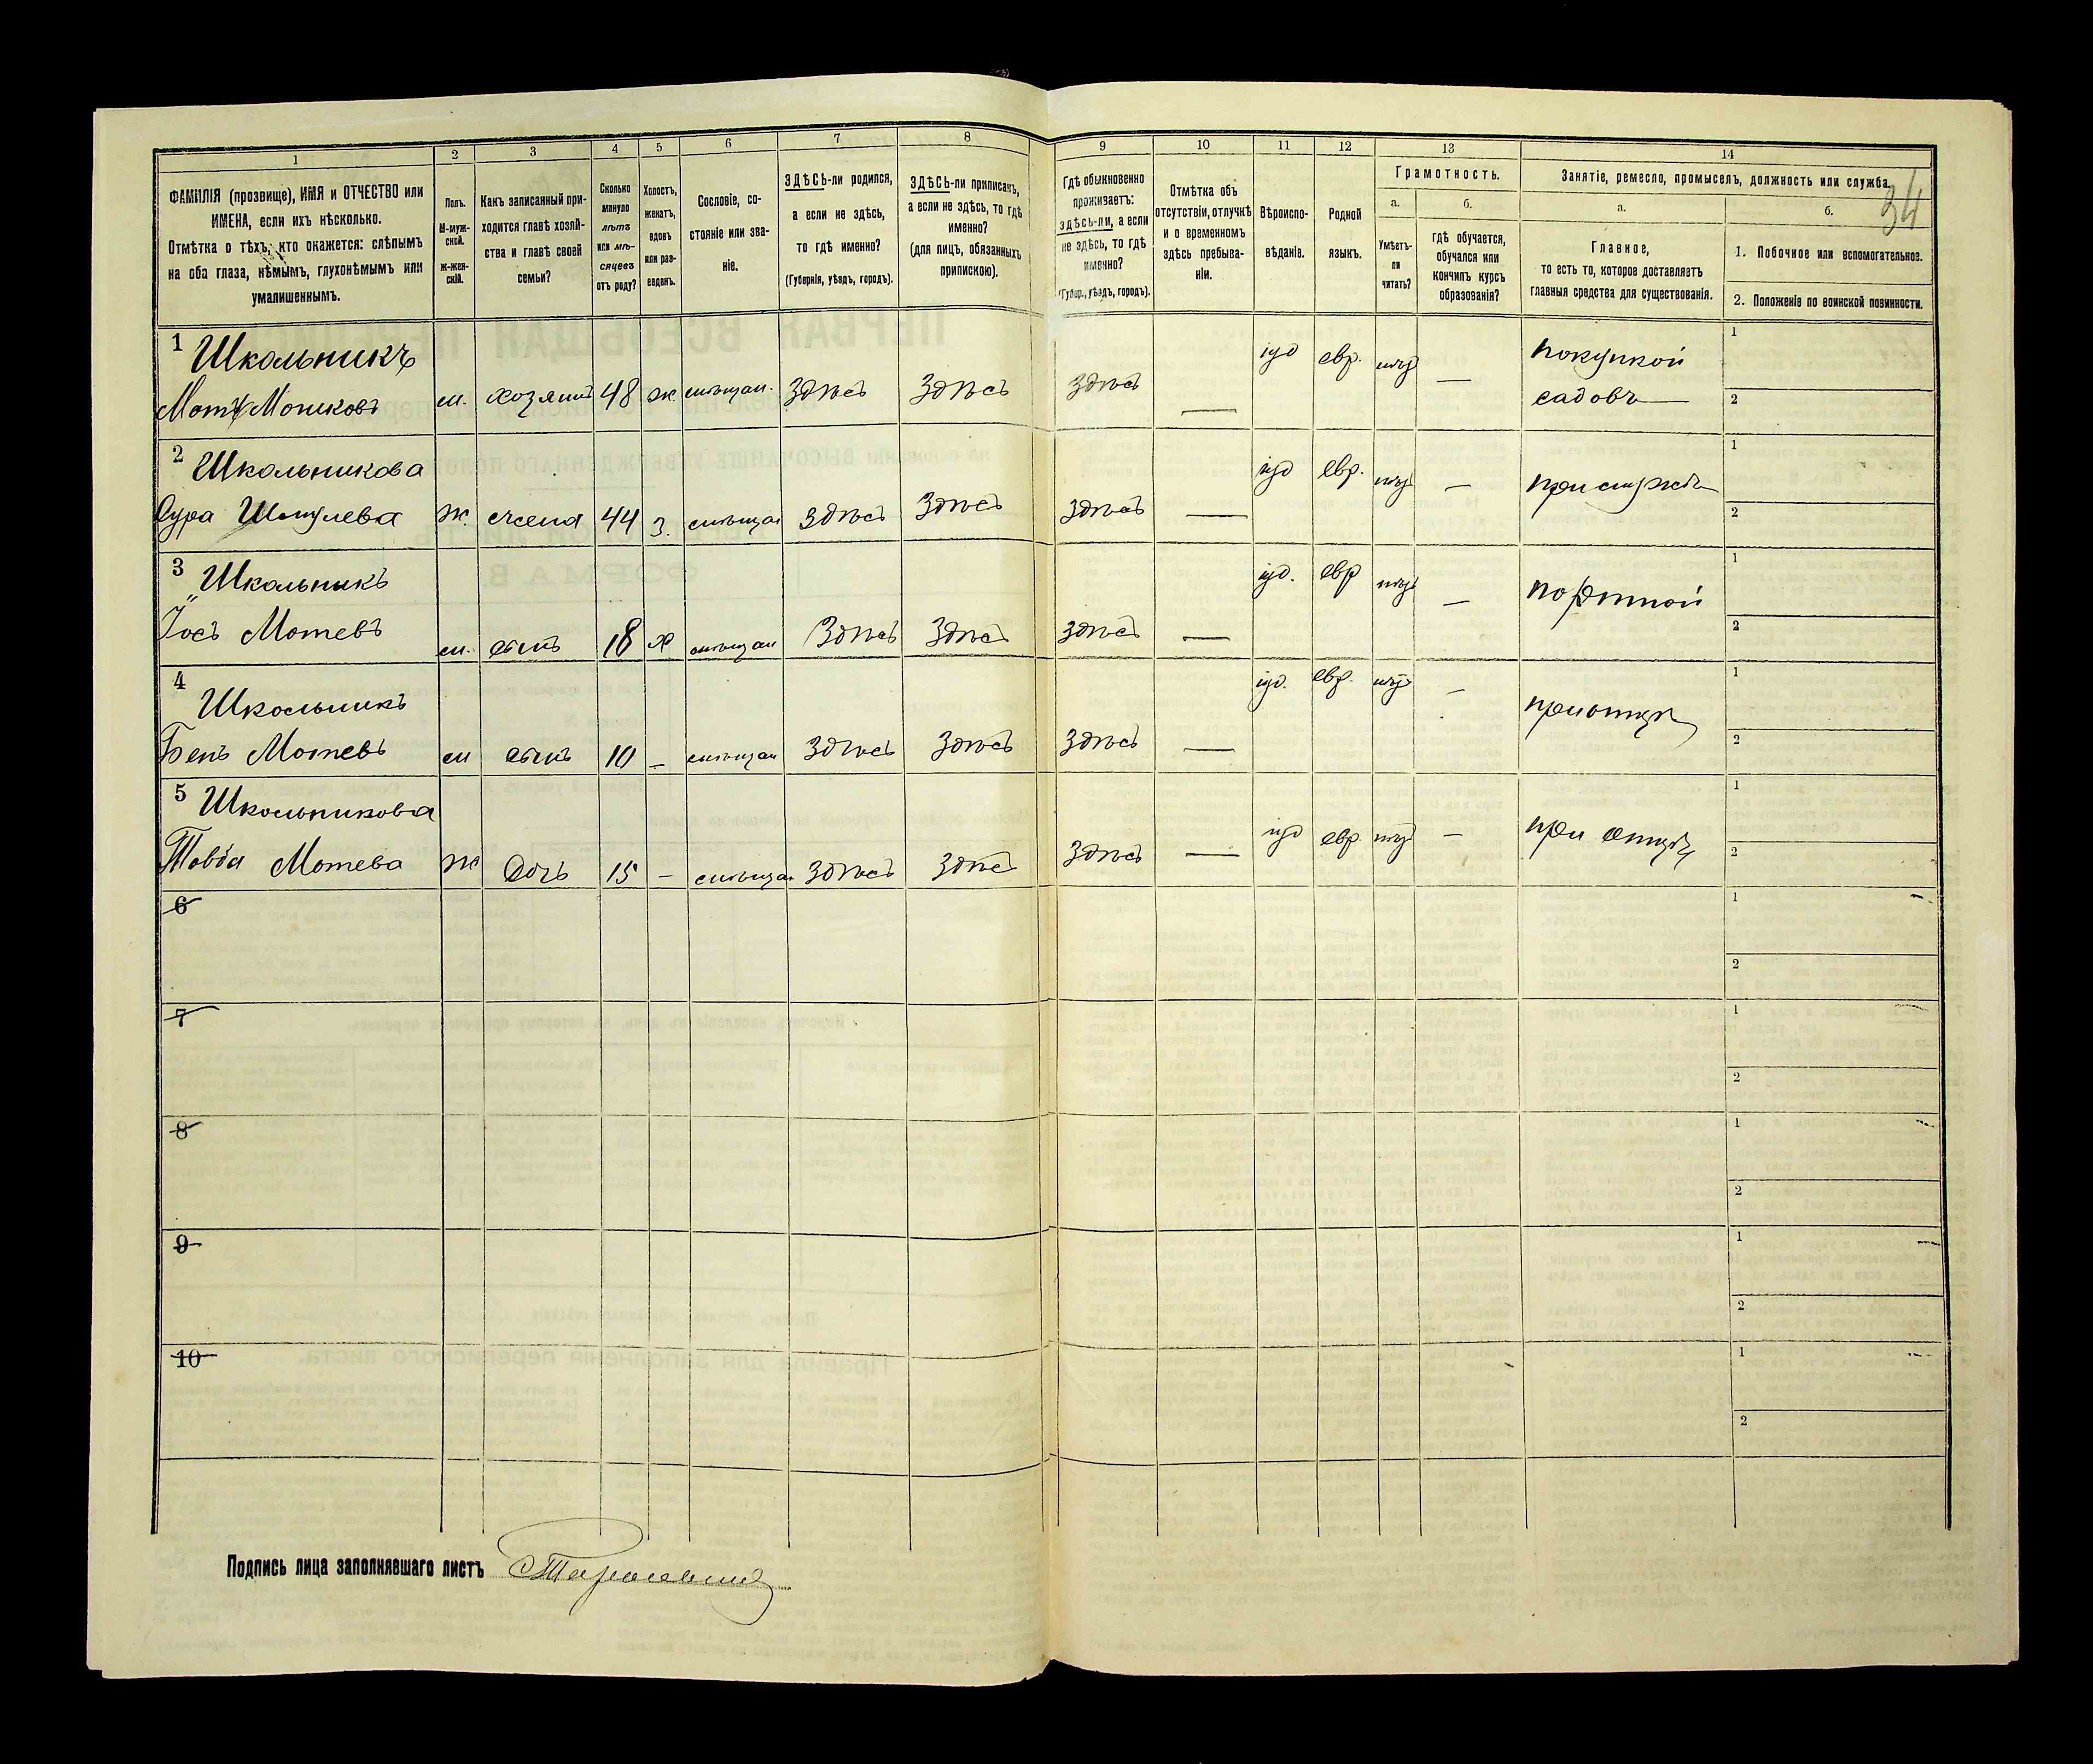 1
2
3
4
5
6
7
8
ФАМИЛІЯ (прозвище), ИМЯ и ОТЧЕСТВО или
ИМЕНА, если ихъ нѣсколько.
Отмѣтка о тѣхъ, кто окажется: слѣпымъ
на оба глаза, нѣмымъ, глухонѣмымъ или
умалишеннымъ.
Полъ.
М-муж-
ской.
Ж-жен-
скій.
Какъ записанный при-
ходится главѣ хозяй-
ства и главѣ своей
семьи?
Сколько
минуло
лѣтъ
или мѣ-
сяцевъ
отъ роду?
Холостъ,
женатъ,
вдовъ
или раз-
веденъ.
Сословіе, со-
стояніе или зва-
ніе.
ЗДѢСЬ-ли родился,
а если не здѣсь,
то гдѣ именно?
(Губернія, уѣздъ, городъ).
ЗДѢСЬ-ли приписанъ,
а если не здѣсь, то гдѣ
именно?
(для лицъ, обязанныхъ
припискою).
9
10
11
12
13
14
Гдѣ обыкновенно
проживаетъ:
здѣсь-ли, а если
не здѣсь, то гдѣ
именно?
(Губер., уѣздъ, городъ).
Отмѣтка объ
отсутствіи, отлучкѣ
и о временномъ
здѣсь пребыва-
ніи.
Вѣроиспо-
вѣданіе.
Родной
языкъ.
Грамотность.
а.
Умѣетъ-
ли
читать?
б.
гдѣ обучается,
обучался или
кончилъ курсъ
образованія?
Занятіе, ремесло, промыселъ, должность или служба.
34
а.
Главное,
то есть то, которое доставляетъ
главныя средства для существованія.
б.
1. Побочное или вспомогательное.
2. Положеніе по воинской повинности.
1 Школьникъ
Мошковъ м. хозяинъ 48 ж. мѣщан. Здѣсь Здѣсь Здѣсь — іуд евр. — покупкой
садовъ
1
2
2 Школьникова
Сура Шмулева ж. жена 44 з. мѣщан Здѣсь Здѣсь Здѣсь — іуд евр. — при мужѣ
1
2
3 Школьникъ
Іось Мотевъ м. сынъ 18 х мѣщан Здѣсь Здѣсь Здѣсь — іуд. евр — портной
1
2
4 Школьникъ
Мотевъ м сынъ 10 — мѣщан Здѣсь Здѣсь Здѣсь — іуд. евр. — при отцѣ
1
2
5 Школьникова
Мотева ж дочь 15 — мѣщан Здѣсь Здѣсь Здѣсь — іуд евр — при отцѣ
1
2
6
1
2
7
1
2
8
1
2
9
1
2
10
1
2
Подпись лица заполнявшаго листъ